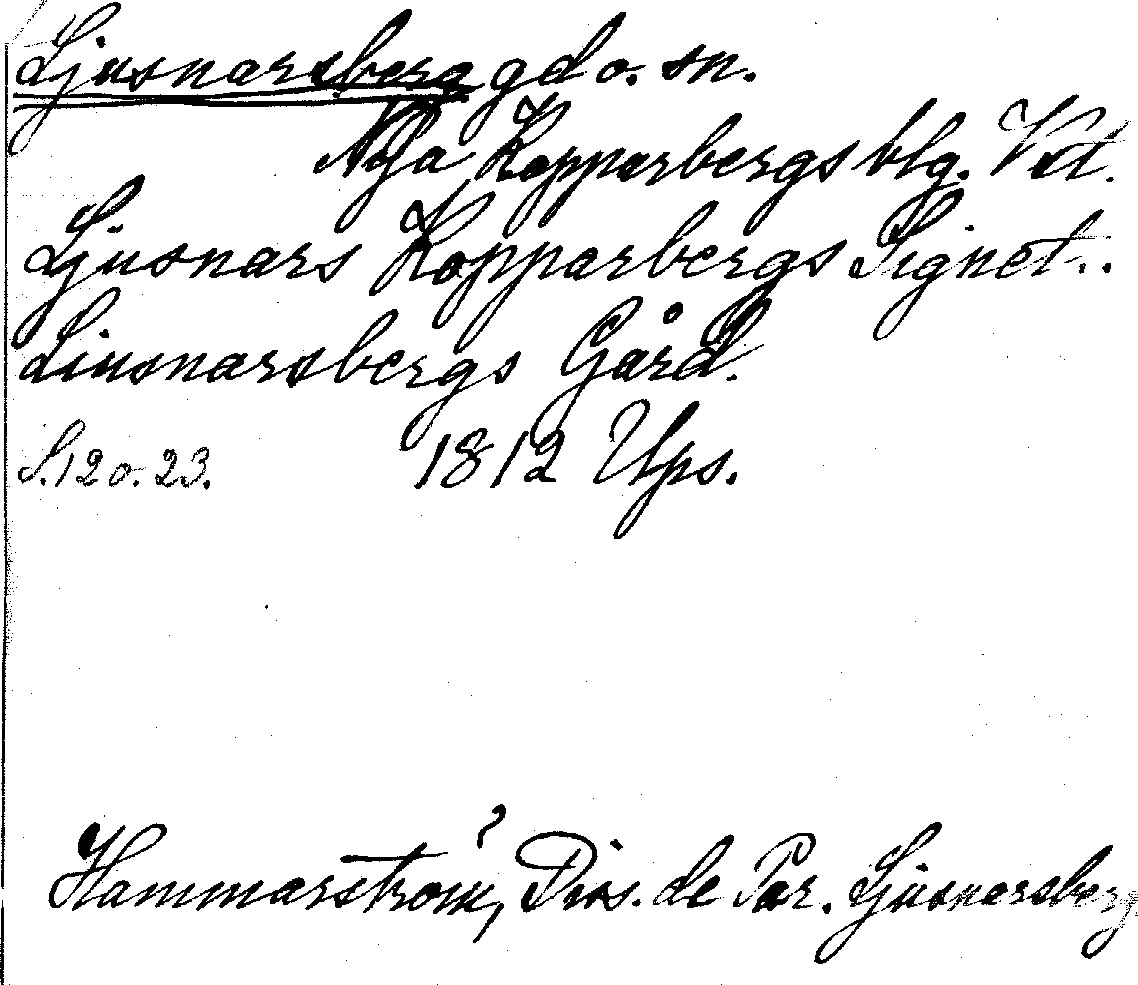 Ljusnarsberg gd o. sn.
Nya Kopparbergs blg. Vstl.
Ljusnars Kopparbergs Signet..
Liusnarsbergs Gård.
S. 12 o. 23. 1812 Ups.
Hammarström, ? Diss. de Par. Ljusnarsberg